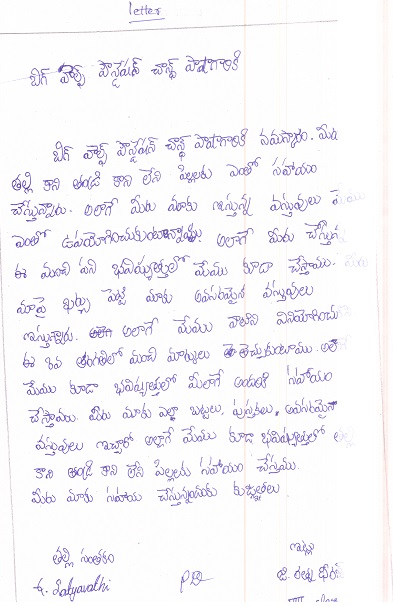 letter
బిగ్ హెల్ప్ ఫౌన్డేషన్ చాన్ద్ పాషాగారికి
బిగ్ హెల్ప్ ఫౌన్డేషన్ చాన్ద్ పాషాగారికి నమస్కారం. మీరు
తల్లి కాని తండ్రి కాని లేని పిల్లలకు ఎంతో సహాయం
చేస్తున్నారు. అలాగే మీరు మాకు ఇస్తున్న వస్తువులు మేము
ఎంతో ఉపయోగించుకుంటున్నాము. అలాగే మీరు చేస్తున్న
ఈ మంచి పని భవిష్యత్తులో మేము కూడా చేస్తాము. మీరు
మాపై ఖర్చు పెట్టి మాకు అవసరమైన వస్తువులు
ఇస్తున్నారు. అలాగే మేము వాటిని వినియోగించు
ఈ 10వ తరగతిలో మంచి మార్కులు తెచ్చుకుంటాము.
మేము కూడా భవిష్యత్తులో మీలాగే అందరికి సహాయం
చేస్తాము. మీరు మాకు ఎల్లా బట్టలు, పుస్తకలు, అవసరమైన
వస్తువులు ఇచ్చారో అల్లాగే మేము కూడా భవిష్యత్తులో తల్లి
కాని తండ్రి కాని లేని పిల్లలకు సహాయం చేస్తాము.
మీరు మాకు సహాయ చేస్తున్నందుకు కృతజ్ఞతలు
తల్లి సంతకం ఇట్లు
జి. రత్న